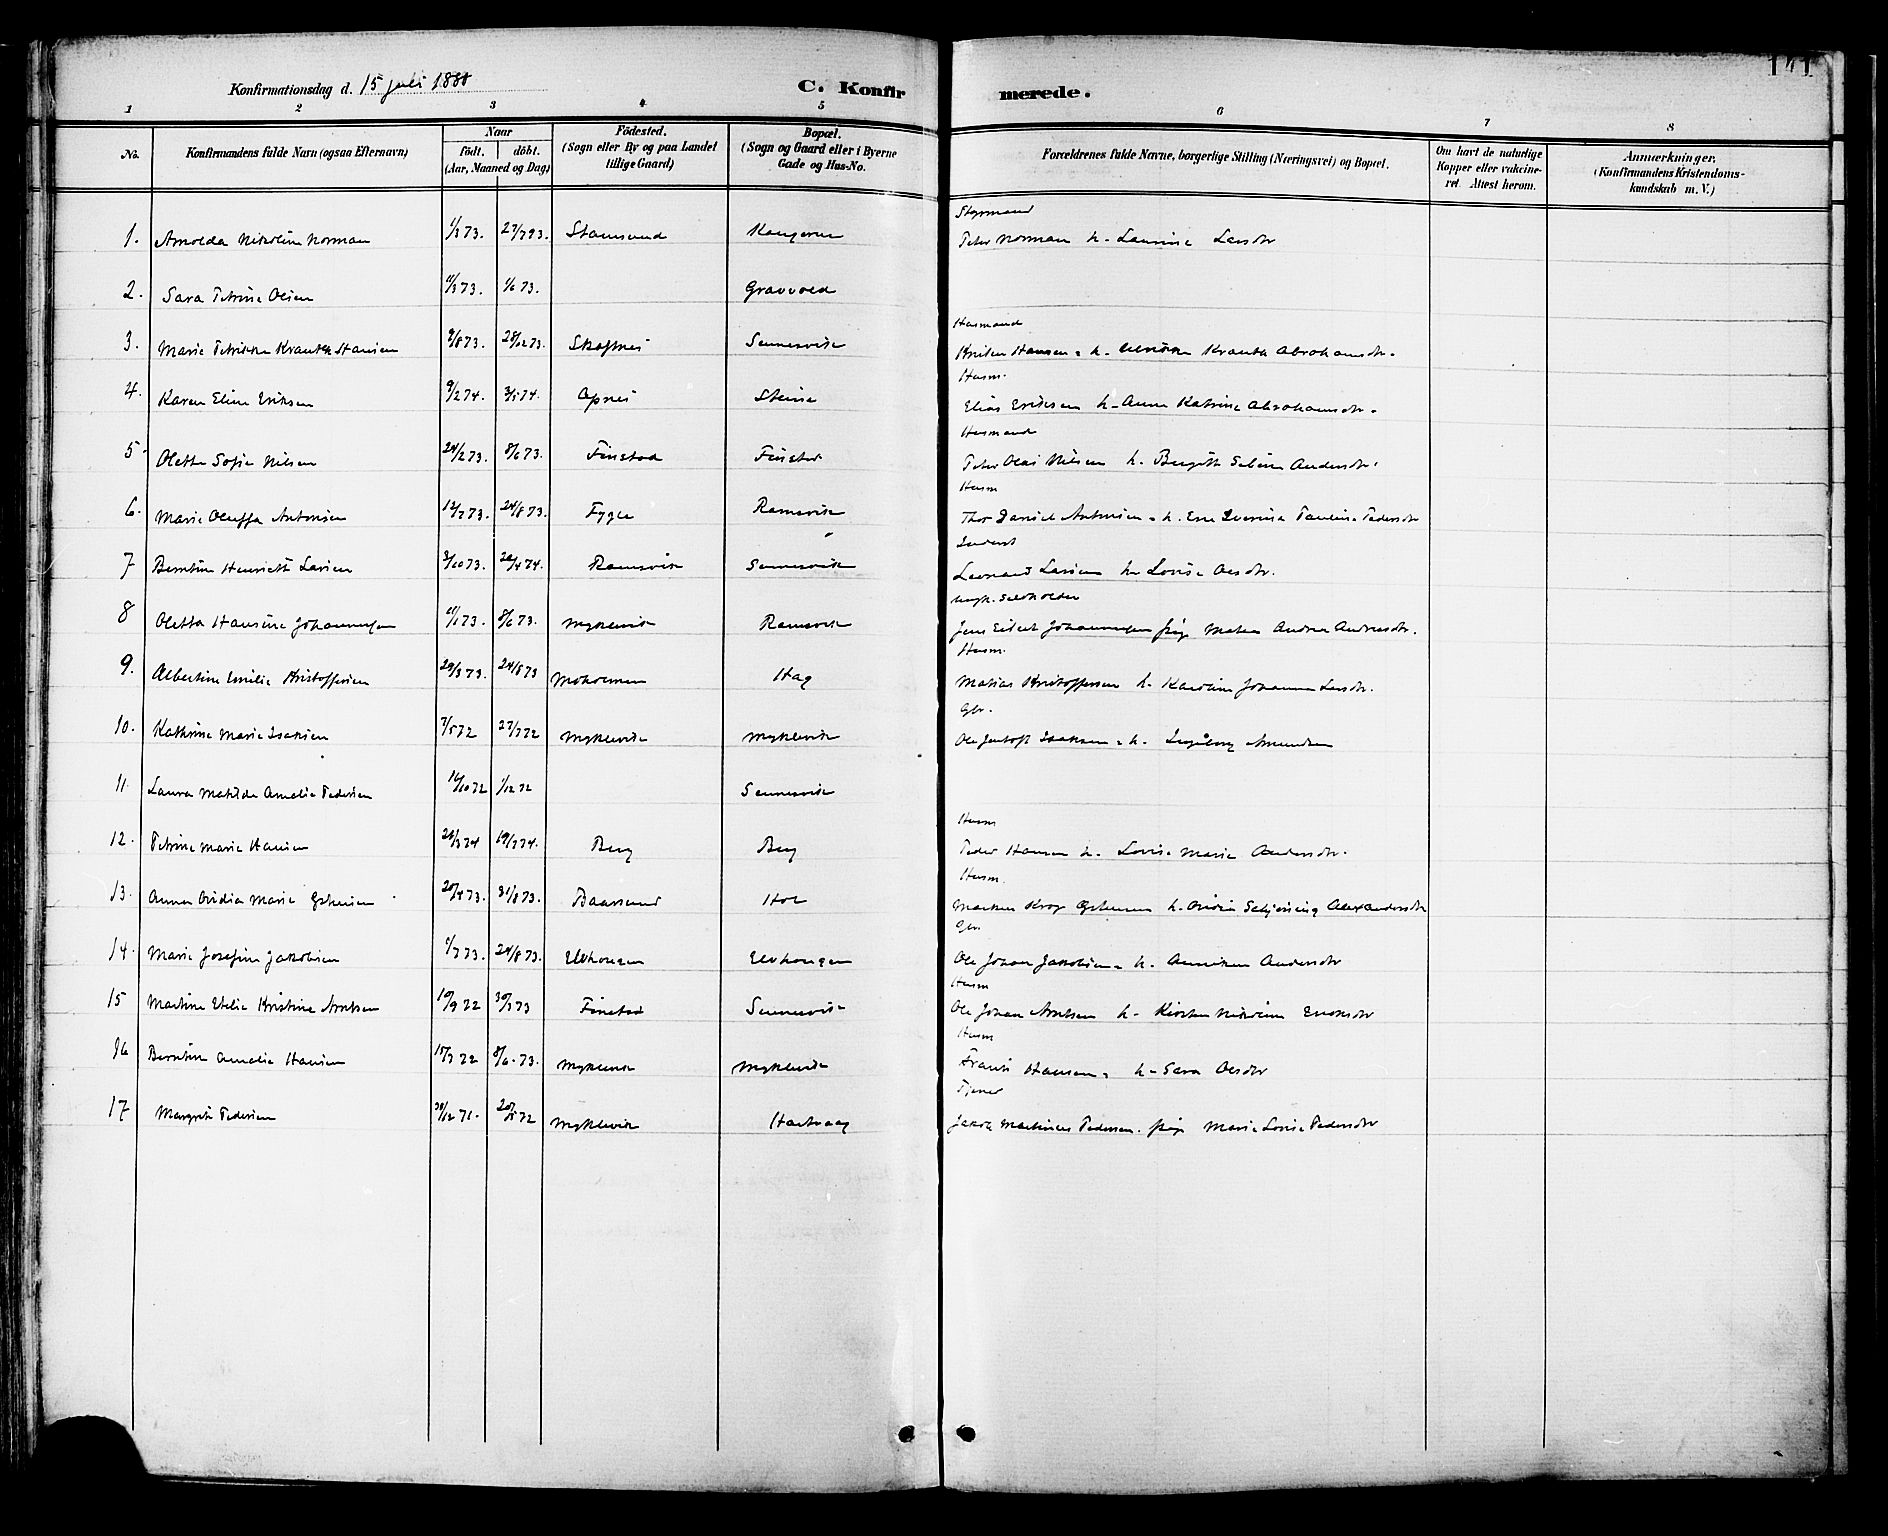 Konfirmationsdag d. 15 juli 1888
C. Konfirmerede.
171
1 2 3 4 5 6 7 8
No. Konfirmandens fulde Navn (ogsaa Efternavn) Naar födt. döbt. (Aar, Maaned og Dag) Födested. (Sogn eller By og paa Landet tillige Gaard) Bopæl. (Sogn og Gaard eller i Byerne Gade og Hus-No. Forældrenes fulde Navne, borgerlige Stilling (Næringsvei) og Bopæl. Om havt de naturlige Kopper eller vakcineret. Attest herom. Anmærkninger. (Konfirmandens Kristendomskundskab m. V.)
Styrmand
1. Arnolda Nikoline Norman 1/3 73. 27/7 93. Stamsund Peter Norman h. Laurine Larsdtr
2. Sara Petrine Olsen 11/3 73. 1/6 73. Gravvold
Husmand
3. Marie Hansen 9/8 73. 28/12 73. Skafnes Sennesvik Hansen h. Abrahamsdtr.
Husm.
4. Karen Eline Eriksen 9/2 74. 3/5 74. Opnes Steine Elias Eriksen h. Anne Katrine Abrahamsdtr.
Husmand
5. Oletta Sofie Nilsen 24/2 73. 8/6 73. Finstad Finstad Peter Olai Nilsen h. Birgitte Andersdtr.
Husm
6. Marie Oluffa Antonsen 12/7 73. 24/8 73. Fygle Ramsvik Thor Daniel Antonsen h. Paulina Pedersdtr
Inderst
7 Berntine Henriette Larsen 3/10 73. 26/4 74. Ramsvik Sennesvik Leonard Larsen h. Lovise Olsdtr.
8 Oletta Hansine Johannessen 11/1 73. 8/6 73. Myklevik Ramsvik Jens Johannessen pige Andrea Andreasdtr.
Husm.
9. Albertine Emilie Kristoffersen 29/3 73. 24/8 73 Moholmen Hag Matias Kristoffersen h. Karoline Johanna Larsdtr.
Gbr.
10. Kathrine Marie Isaksen 7/5 72 27/7 72 Myklevik Myklevik Ole Isaksen h. Ingeborg Amundsen
11. Laura Matilde Amalie Pedersen 16/10 72 1/12 72 Sennesvik
Husm
12. Petrine Marie Hansen 21/3 74 19/7 74. Berg Berg Peder Hansen h. Lovise Marie Andersdtr.
Husm.
13. Anna Ovidia Marie 20/4 73. 31/8 73. Baarsund Hol Markus Krog h. Ovidia Alexandersdtr
Gbr.
14. Marie Josefine Jakobsen 1/7 73. 24/8 73. Elvhougen Elvhougen Ole Johan Jakobsen h. Anniken Andersdtr
Husm
15 Martine Etelie Kristine Arntsen 10/9 72 30/3 73 Finstad Sennesvik Ole Johan Arntsen h. Kirsten Nikoline
Husm
16 Berntine Amalie Hansen 15/3 72 8/6 73. Myklevik Myklevik Frants Hansen h. Sara Olsdtr
Tjener
17 Margrete Pedersen 30/12 71. 20/5 72 Myklevik Hartvaag Jakob Martinus Pedersen. pige Marie Lovise Pedersdtr